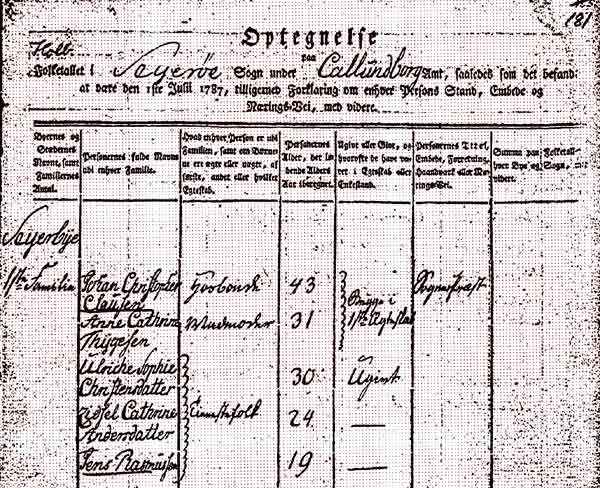 181
Holb.
Optegnelse
paa
Folketallet i Seyerøe Sogn under Callundborg Amt, saaledes som det befand-
at være den 1ste Julii 1787, tilligemed Forklaring om enhver Persons Stand, Embede og
Nærings-Vei, med videre.
Byernes og Stædernes Navne, samt Familiernes Antal.
Personernes fulde Navne udi enhver Familie.
Hvad enhver Person er udi Familien, samt om Børnene ere ægte eller uægte, af første, andet eller hvilket Egteskab.
Personernes Alder, det løbende Alders Aar iberegnet.
Ugivt eller Givt, og hvorofte de have været i Egteskab eller Enkestand.
Personernes Titel, Embede, Forretning, Haandværk eller Nærings-Vei.
Summa paa Folketallet udi hver Bye og Sogn, m: videre.
Seyerbÿe
1ste Familie
Johan Christopher Clausen Hosbonde 43 Sognepræst
Begge i 1ste Ægteskab
Anne Cathrine Thÿgesen Madmoder 31
Ulriche Sophie Christensdatter 30 Ugivt
Zidsel Cathrine Andersdatter Tienestefolk 24 —
Jens Rasmussen 19 —